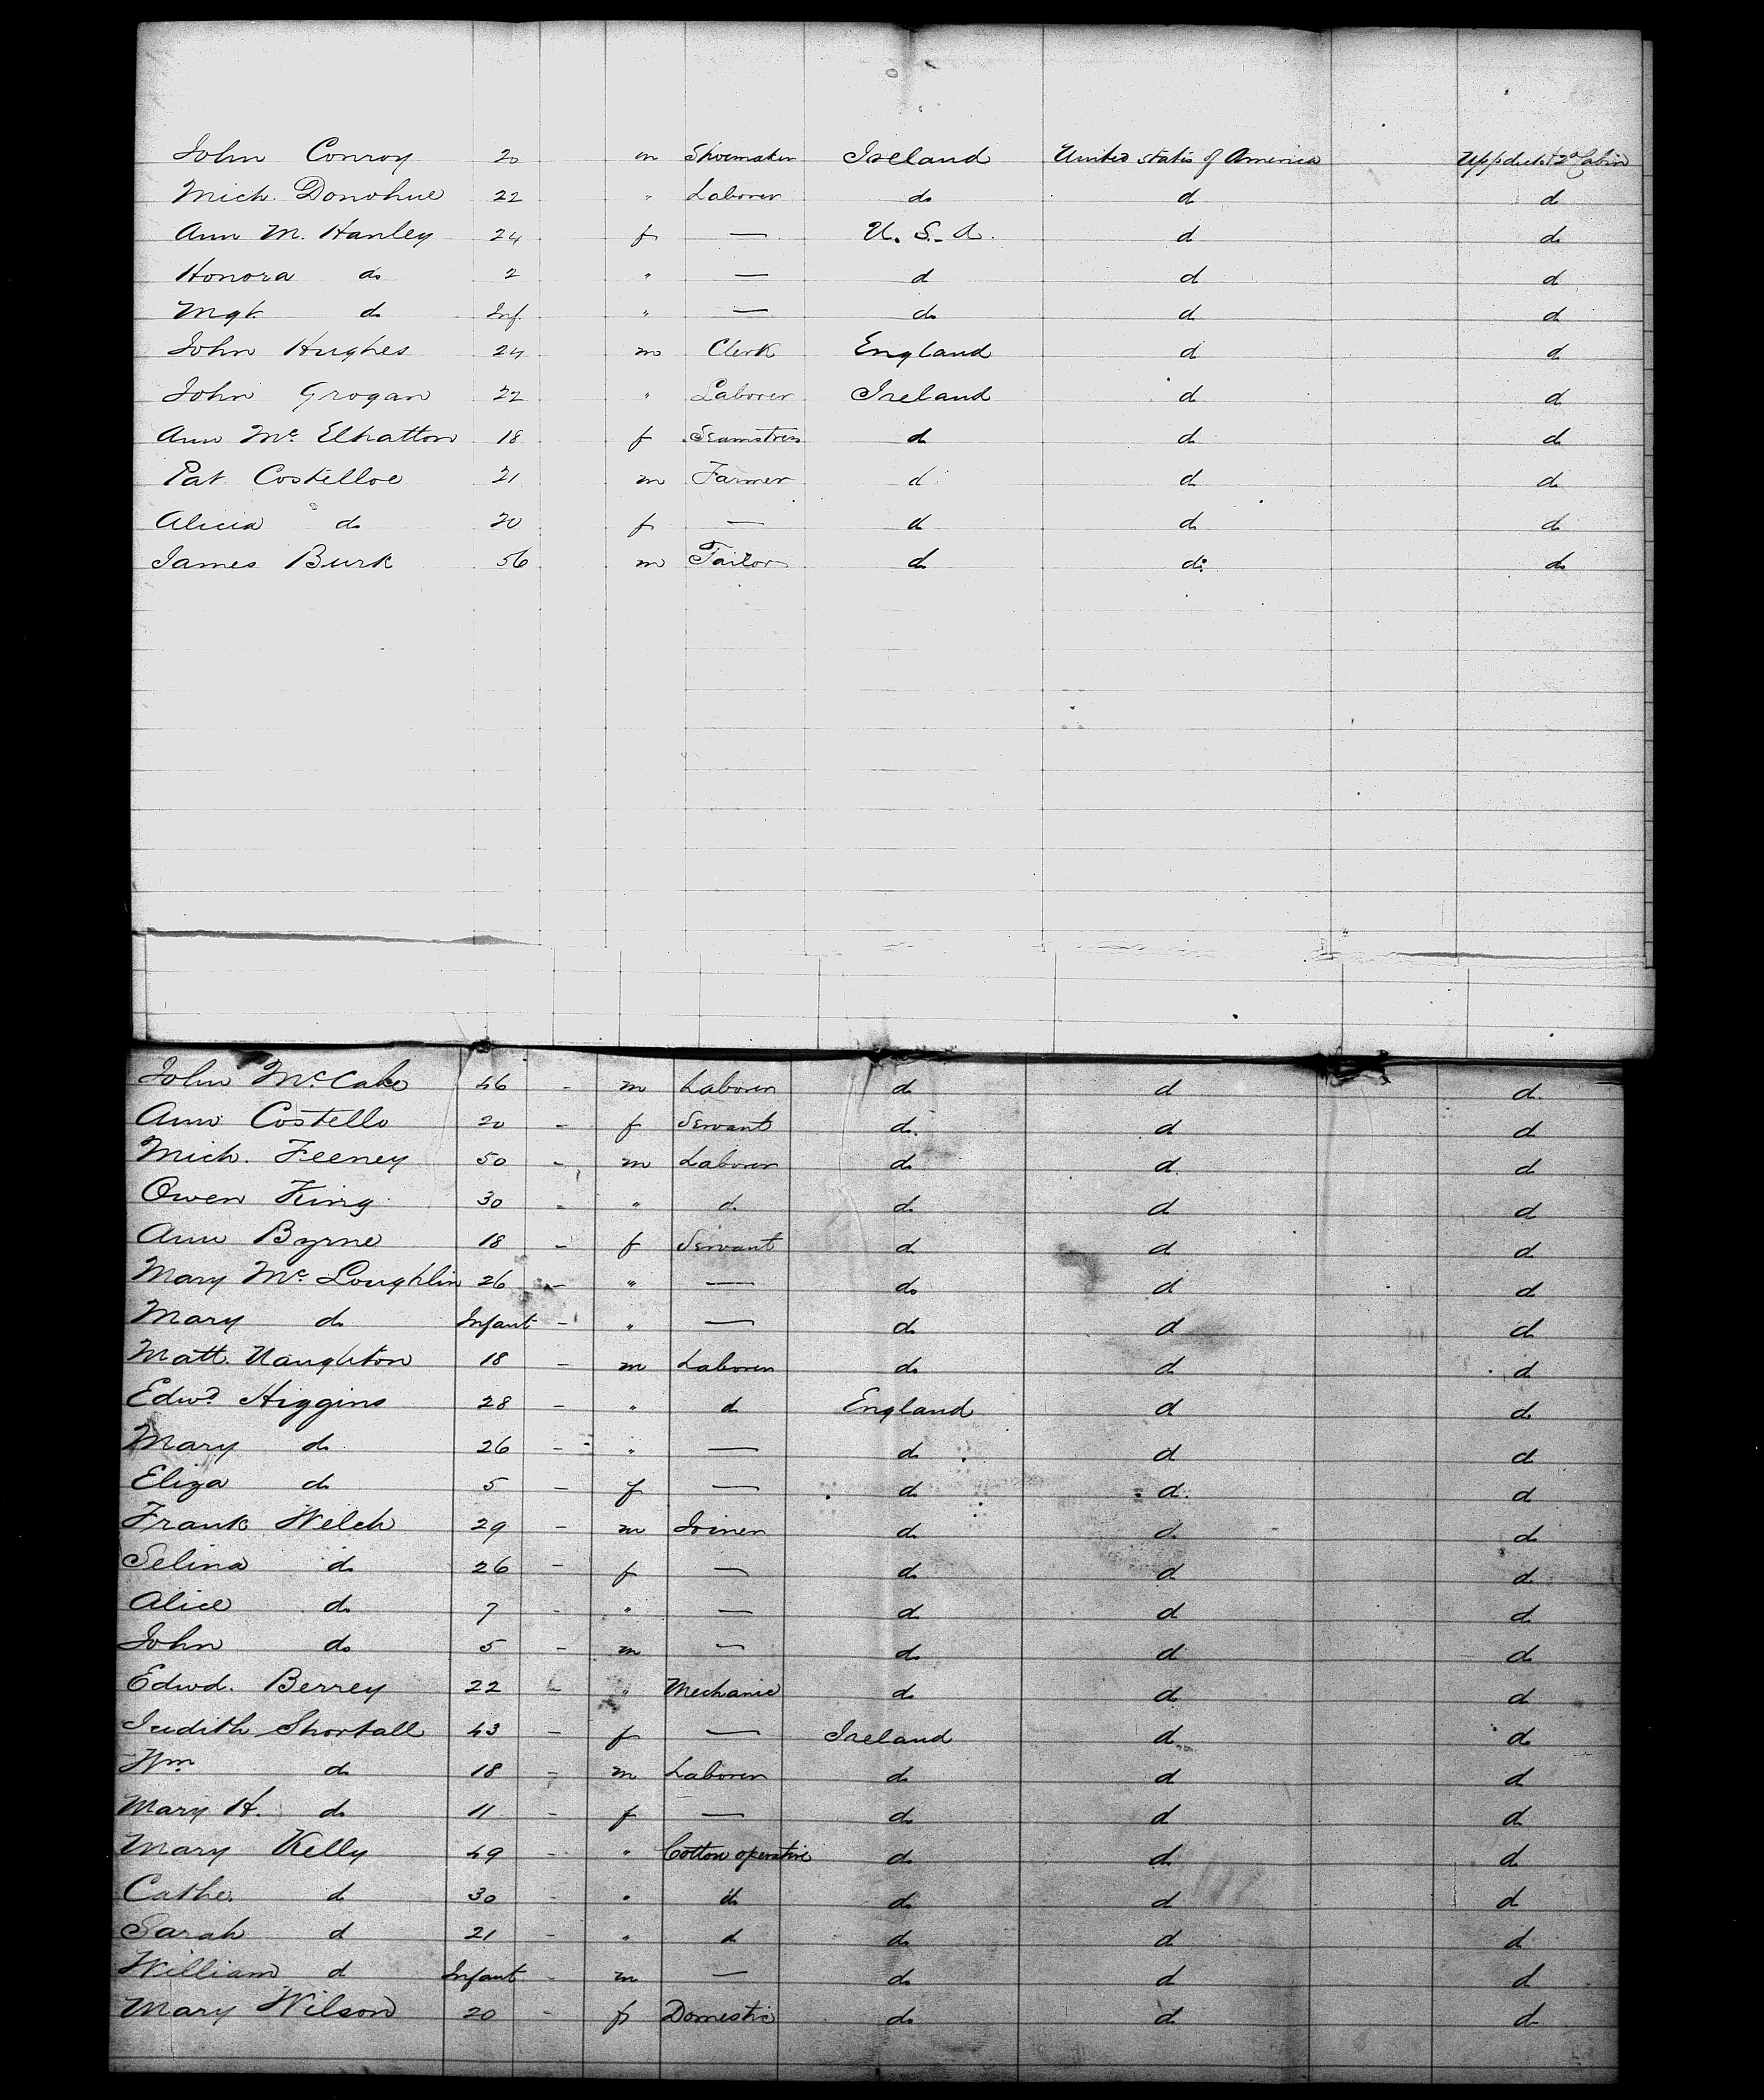 John Conroy 20 m Shoemaker Ireland United States of America Upp deck & 2d Cabin
Mich. Donohue 22 " Laborer do d d
Ann M. Hanley 24 f — U. S. A. d do
Honora do 2 " — d d d
Mgt. do Inf. " — do d d
John Hughes 24 m Clerk England d d
John Grogan 22 " Laborer Ireland d d
Ann Mc Elhatton 18 f Seamstress d do do
Pat Costelloe 21 m Farmer d do do
Alicia do 20 f — d do do
James Burk 56 m Tailor do do do
John McCabe 46 - m Laborer do d d
Ann Costello 20 - f Servant do d d
Mich. Feeney 50 - m Laborer do d d
Owen King 30 - " d do d d
Ann Byrne 18 - f Servant d d d
Mary Mc Loughlin 26 - " — do d d
Mary do Infant - " — do d do
Matt. Naughton 18 - m Laborer do d d
Edwd Higgins 28 - " d England d do
Mary do 26 - " — do d d
Eliza do 5 - f — do d d
Frank Welch 29 - m Joiner do d do
Selina do 26 - f — do d do
Alice do 7 - " — do d do
John do 5 - m — do d do
Edwd. Berrey 22 - " Mechanic do d do
Judith Shortall 43 - f — Ireland d do
Wm do 18 - m Laborer do d d
Mary H. do 11 - f — do d do
Mary Kelly 49 - " Cotton operative do do do
Cathe. d 30 - " do do do d
Sarah d 21 - " d do d d
William d Infant - m — do d d
Mary Wilson 20 - f Domestic do d d